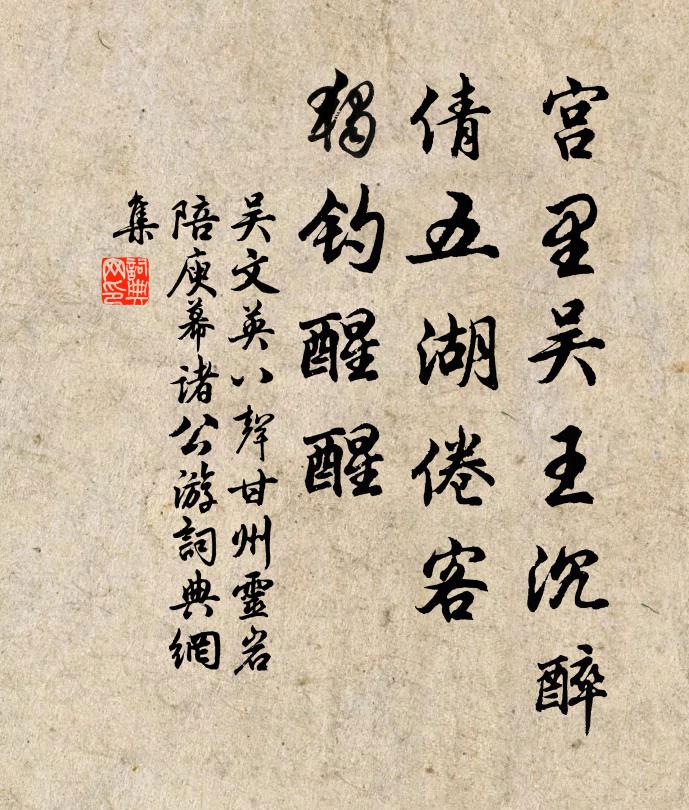 宫里吴王沉醉
倩五湖倦客
独钓醒醒
吴文英八聲甘州靈岩
陪庾幕诸公游詞典網
集
詞典
网印